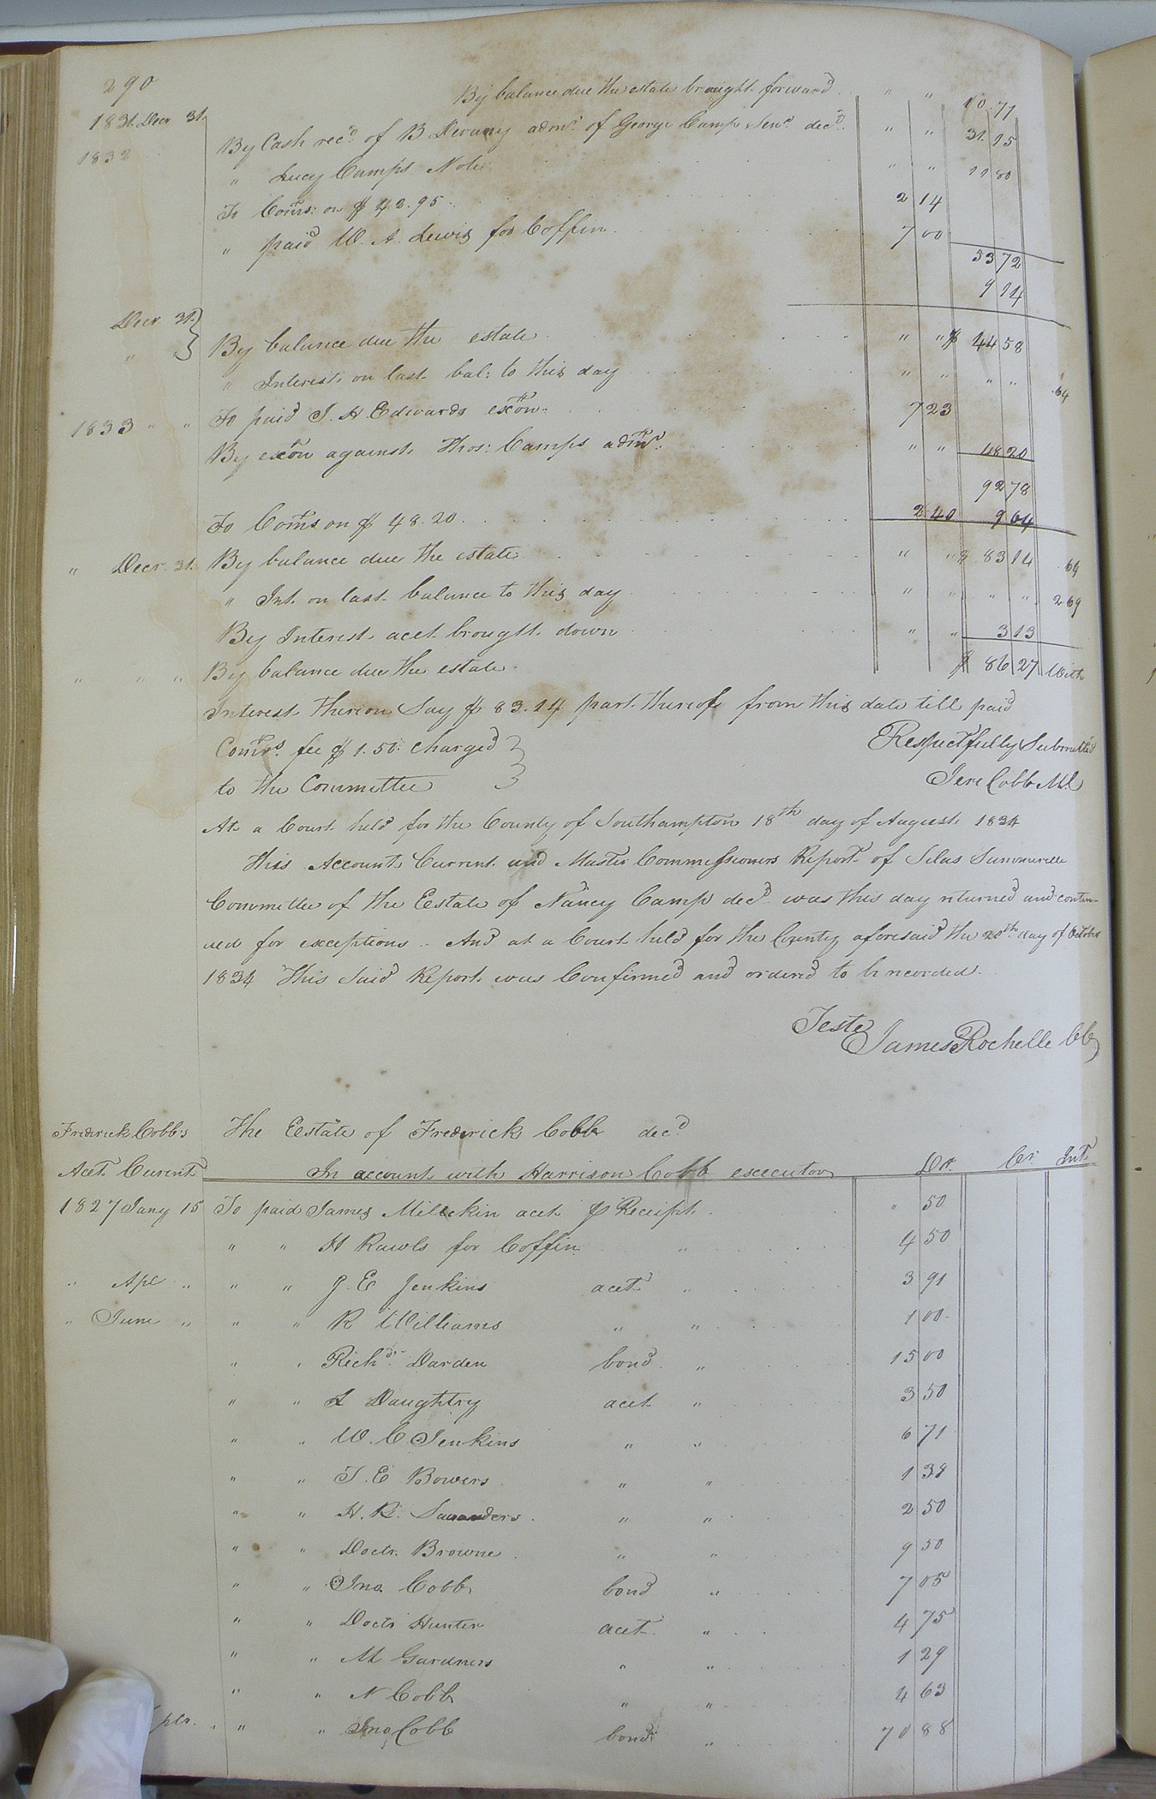 290
By balance due the estate brought forward " " 10.77
1831 Decr 31. By Cash recd. of B Devany admr. of George Camp Senr. decd. " " 31.15
1832 " Lucy Camps Note " " 11 80
To Coms: on $ 42.95 2 14
" paid W. A. Lewis for Coffin 7 00
53 72
9 14
Decr 31. } By balance due the estate " " $ 44 58
" } " Interest on last bal: to this day " " " " .64
1833 " " To paid J. H. Edwards exon. 7 23
By exon against Thos: Camps admr. " " 48 20
92 78
To Coms on $ 48.20 2 40 9 64
" Decr. 31. By balance due the estate " " $ 83 14 .64
" Int. on last balance to this day " " " " 2 69
By Interest acct. brought down " " 3 13
" " " By balance due the estate $ 86 27 With
Interest thereon Say $ 83.14 part thereof from this date till paid
Comrs. fee $ 1.50. charged } Respectfully Submitted
to the Committee } Jere Cobb M.C
At a Court held for the County of Southampton 18th day of August 1834
This Account Current and Master Commissioners Report of Silas Summerell
Committee of the Estate of Nancy Camp decd. was this day returned and contin-
ued for exceptions .. And at a Court held for the County aforesaid the 20th day of October
1834 This Said Report was Confirmed and ordered to be recorded.
Teste
James Rochelle CC
Frederick Cobb's The Estate of Frederick Cobb decd
Acct. Current In account with Harrison Cobb executor Dr. Cr. Int.
1827 Jany 15 To paid James Millekin acct. Receipt " 50
" " H Rawls for Coffin " 4 50
" Apl " " " J. E Jenkins acct. " 3 91
" June " " " R Williams " " 1 00
" " Richd. Darden bond " 15 00
" " L Daughtry acct " 3 50
" " W. C Jenkins " " 6 71
" " J. E Bowers " " 1 38
" " H. B. Saunders " " 2 50
" " Doctr. Browne " " 9 50
" " Jno. Cobb bond " 7 05
" " Doctr Hunter acct. " 4 75
" " M Gardners " " 1 29
" " N Cobb " " 4 63
" " Jno Cobb bond " 70 88